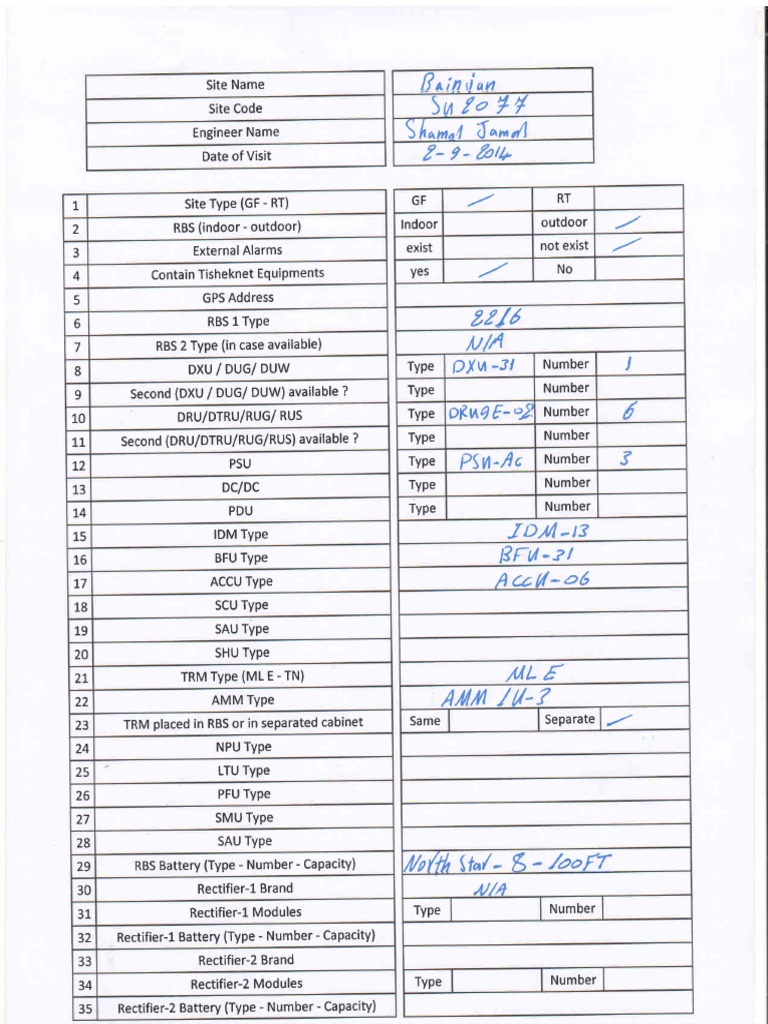 Site Name Bainjan
Site Code Su 2077
Engineer Name Shamal Jamal
Date of Visit 2-9-2014
1 Site Type (GF - RT) GF ✓ RT
2 RBS (indoor - outdoor) Indoor outdoor ✓
3 External Alarms exist not exist ✓
4 Contain Tisheknet Equipments yes ✓ No
5 GPS Address
6 RBS 1 Type 2216
7 RBS 2 Type (in case available) N/A
8 DXU / DUG/ DUW Type DXU-31 Number 1
9 Second (DXU / DUG/ DUW) available ? Type Number
10 DRU/DTRU/RUG/ RUS Type DRU9E-02 Number 6
11 Second (DRU/DTRU/RUG/RUS) available ? Type Number
12 PSU Type PSU-Ac Number 3
13 DC/DC Type Number
14 PDU Type Number
15 IDM Type IDM-13
16 BFU Type BFU-31
17 ACCU Type ACCU-06
18 SCU Type
19 SAU Type
20 SHU Type
21 TRM Type (ML E - TN) ML E
22 AMM Type AMM 1U-3
23 TRM placed in RBS or in separated cabinet Same Separate ✓
24 NPU Type
25 LTU Type
26 PFU Type
27 SMU Type
28 SAU Type
29 RBS Battery (Type - Number - Capacity) North Star - 8 - 100FT
30 Rectifier-1 Brand N/A
31 Rectifier-1 Modules Type Number
32 Rectifier-1 Battery (Type - Number - Capacity)
33 Rectifier-2 Brand
34 Rectifier-2 Modules Type Number
35 Rectifier-2 Battery (Type - Number - Capacity)